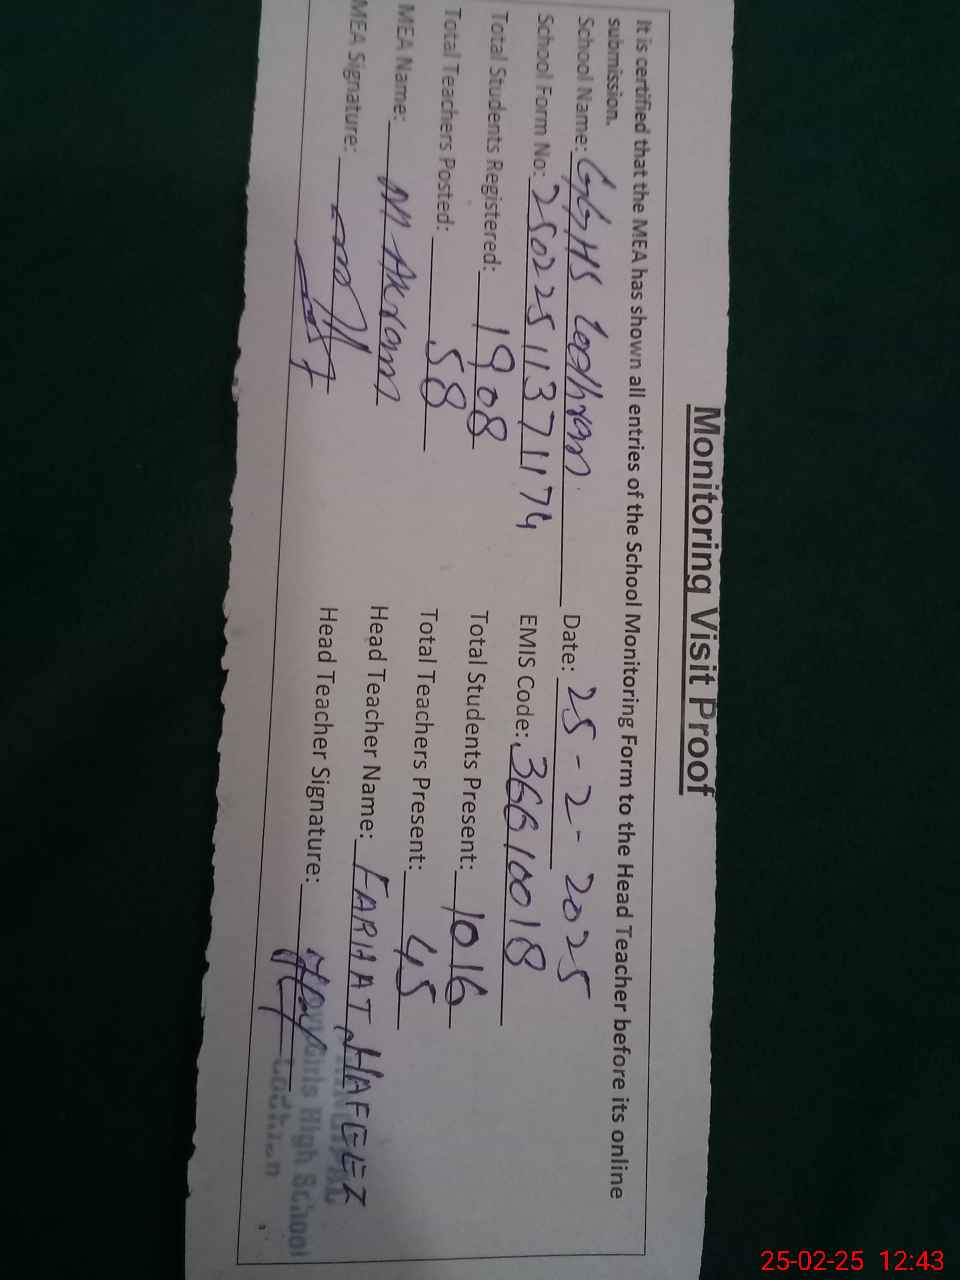 Monitoring Visit Proof
It is certified that the MEA has shown all entries of the School Monitoring Form to the Head Teacher before its online
submission.
School Name: GGHS Lodhran Date: 25-2-2025
School Form No: 25022511371174 EMIS Code: 36610018
Total Students Registered: 1908 Total Students Present: 1016
Total Teachers Posted: 58 Total Teachers Present: 45
MEA Name: M Akram Head Teacher Name: FARHAT HAFEEZ
MEA Signature: Head Teacher Signature:
Girls High School
25-02-25 12:43